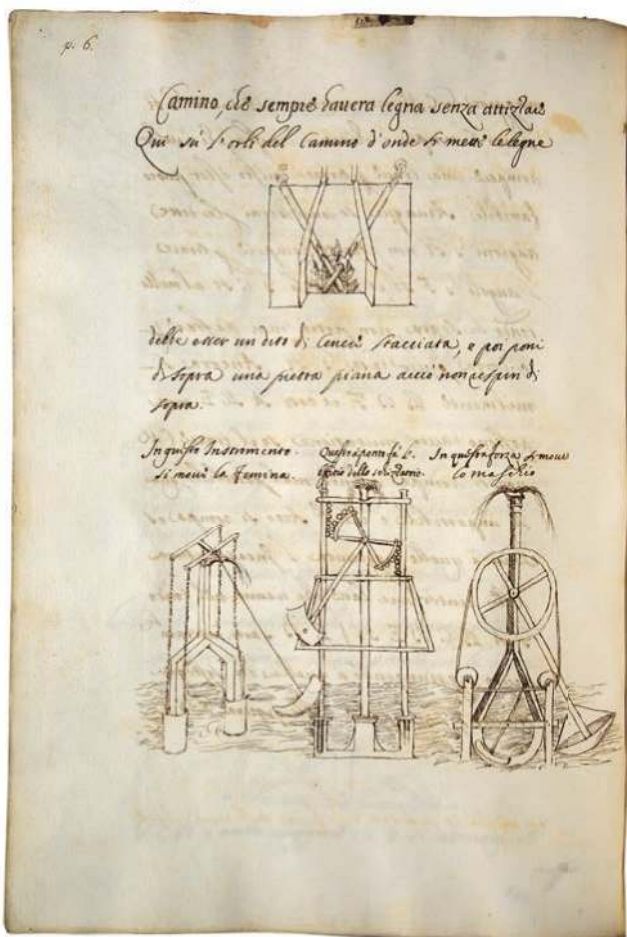 p. 6.
Camino, che sempre havera legna senza attizzare
Qui sù l'orli del Camino d'onde si mette le legne
debbe esser un dito di cenere stacciata, e poi poni
di sopra una pietra piana acciò non respiri di
sopra.
In questo Instromento
si move la femina.
Questo a ponto fà l'
officio dello schizzatorio.
In questa forza si move
lo maschio